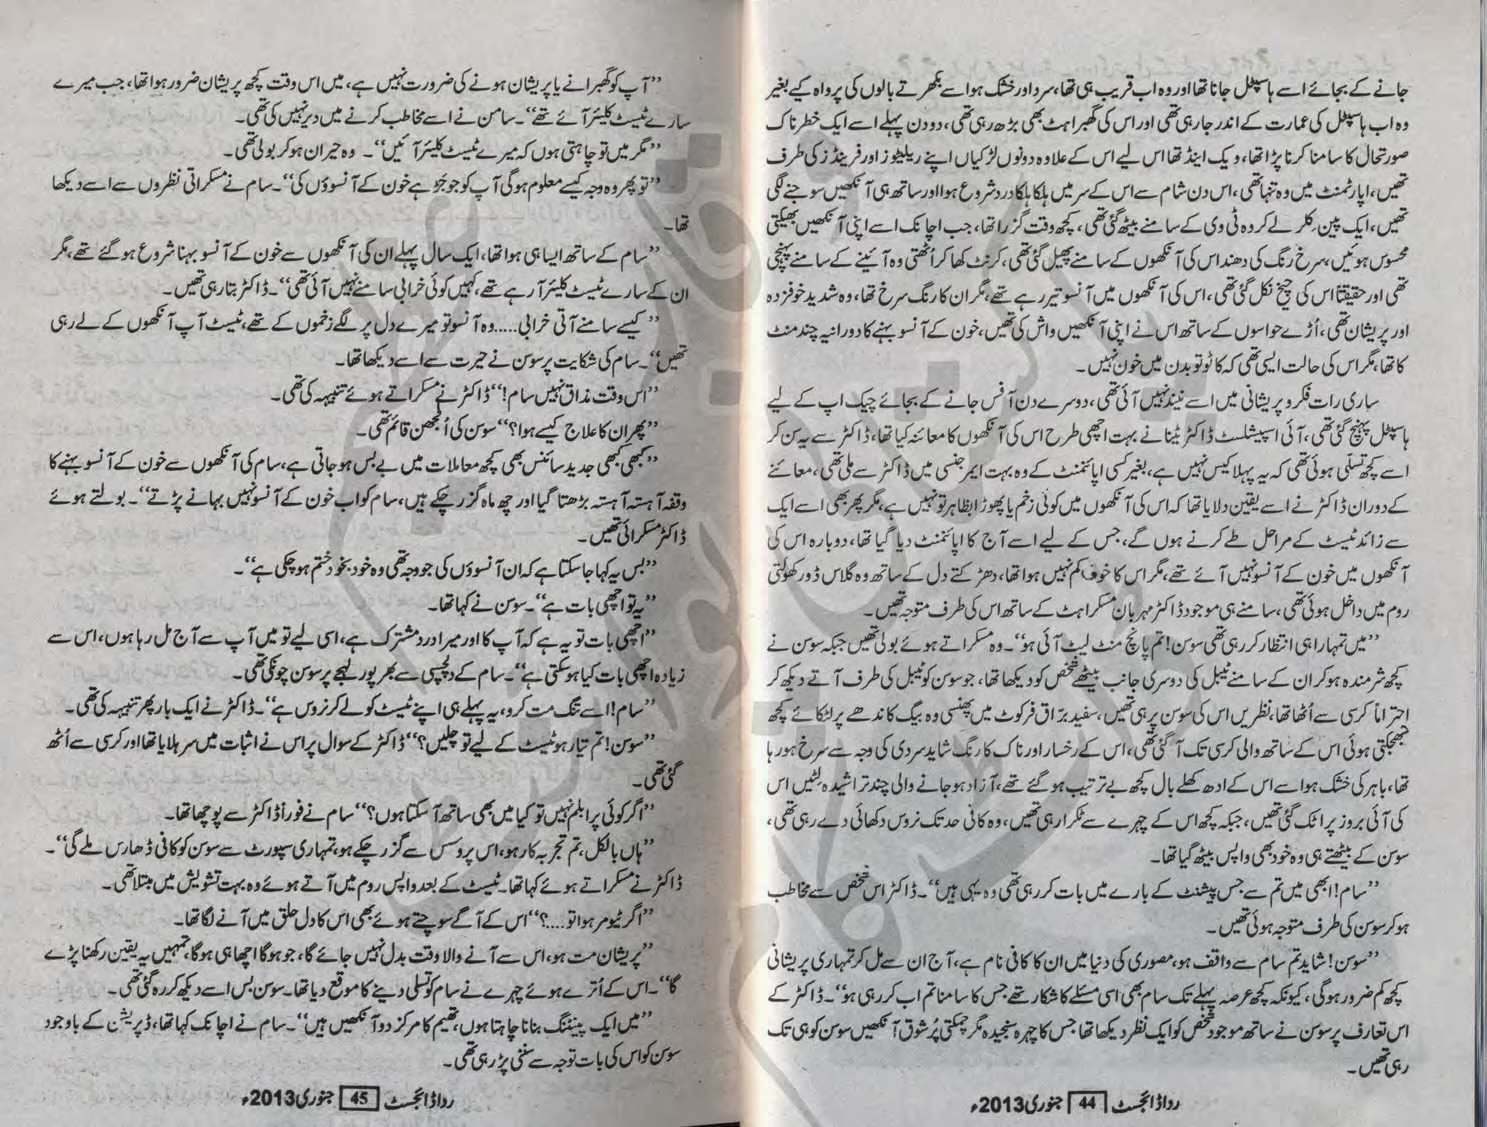 جانے کے بجائے اسے ہاسپٹل جانا تھا اور وہ اب قریب ہی تھا، سرد اور خشک ہوا سے بکھرتے بالوں کی پرواہ کیے بغیر
وہ اب ہاسپٹل کی عمارت کے اندر جا رہی تھی اور اس کی گھبراہٹ بھی بڑھ رہی تھی، دو دن پہلے اسے ایک خطرناک
صورتحال کا سامنا کرنا پڑا تھا، ویک اینڈ تھا اس لیے اس کے علاوہ دونوں لڑکیاں اپنے ریلیٹوز اور فرینڈز کی طرف
تھیں، اپارٹمنٹ میں وہ تنہا تھی، اس دن شام سے اس کے سر میں ہلکا ہلکا درد شروع ہوا اور ساتھ ہی آنکھیں سوجنے لگی
تھیں، ایک پین کلر لے کر وہ ٹی وی کے سامنے بیٹھ گئی تھی، کچھ وقت گزرا تھا، جب اچانک اسے اپنی آنکھیں بھیگتی
محسوس ہوئیں، سرخ رنگ کی دھند اس کی آنکھوں کے سامنے پھیل گئی تھی، کرنٹ کھا کر اُٹھتی وہ آئینے کے سامنے پہنچی
تھی اور حقیقتاً اس کی چیخ نکل گئی تھی، اس کی آنکھوں میں آنسو تیر رہے تھے، مگر ان کا رنگ سرخ تھا، وہ شدید خوفزدہ
اور پریشان تھی، اُڑے حواسوں کے ساتھ اس نے اپنی آنکھیں واش کی تھیں، خون کے آنسو بہنے کا دورانیہ چند منٹ
کا تھا، مگر اس کی حالت ایسی تھی کہ کاٹو تو بدن میں خون نہیں۔
ساری رات فکر و پریشانی میں اسے نیند نہیں آئی تھی، دوسرے دن آفس جانے کے بجائے چیک اپ کے لیے
ہاسپٹل پہنچ گئی تھی، آئی اسپیشلسٹ ڈاکٹر ٹینا نے بہت اچھی طرح اس کی آنکھوں کا معائنہ کیا تھا، ڈاکٹر سے یہ سن کر
اسے کچھ تسلی ہوئی تھی کہ یہ پہلا کیس نہیں ہے، بغیر کسی اپائنمنٹ کے وہ بہت ایمرجنسی میں ڈاکٹر سے ملی تھی، معائنے
کے دوران ڈاکٹر نے اسے یقین دلایا تھا کہ اس کی آنکھوں میں کوئی زخم یا پھوڑا بظاہر تو نہیں ہے، مگر پھر بھی اسے ایک
سے زائد ٹیسٹ کے مراحل طے کرنے ہوں گے، جس کے لیے اسے آج کا اپائنمنٹ دیا گیا تھا، دوبارہ اس کی
آنکھوں میں خون کے آنسو نہیں آئے تھے، مگر اس کا خوف کم نہیں ہوا تھا، دھڑکتے دل کے ساتھ وہ گلاس ڈور کھولتی
روم میں داخل ہوئی تھی، سامنے ہی موجود ڈاکٹر مہربان مسکراہٹ کے ساتھ اس کی طرف متوجہ تھیں۔
"میں تمہارا ہی انتظار کر رہی تھی سوسن! تم پانچ منٹ لیٹ آئی ہو"۔ وہ مسکراتے ہوئے بولی تھیں جبکہ سوسن نے
کچھ شرمندہ ہو کر ان کے سامنے ٹیبل کی دوسری جانب بیٹھے شخص کو دیکھا تھا، جو سوسن کو ٹیبل کی طرف آتے دیکھ کر
احتراماً کرسی سے اُٹھا تھا، نظریں اس کی سوسن پر ہی تھیں، سفید براق فر کوٹ میں پھنسی وہ بیگ کاندھے پر لٹکائے کچھ
جھجکتی ہوئی اس کے ساتھ والی کرسی تک آ گئی تھی، اس کے رخسار اور ناک کا رنگ شاید سردی کی وجہ سے سرخ ہو رہا
تھا، باہر کی خشک ہوا سے اس کے ادھ کھلے بال کچھ بے ترتیب ہو گئے تھے، آزاد ہو جانے والی چند تراشیدہ لٹیں اس
کی آئی بروز پر اٹک گئی تھیں، جبکہ کچھ اس کے چہرے سے ٹکرا رہی تھیں، وہ کافی حد تک نروس دکھائی دے رہی تھی،
سوسن کے بیٹھتے ہی وہ خود بھی واپس بیٹھ گیا تھا۔
"سام! ابھی میں تم سے جس پیشنٹ کے بارے میں بات کر رہی تھی وہ یہی ہیں"۔ ڈاکٹر اس شخص سے مخاطب
ہو کر سوسن کی طرف متوجہ ہوئی تھیں۔
"سوسن! شاید تم سام سے واقف ہو، مصوری کی دنیا میں ان کا کافی نام ہے، آج ان سے مل کر تمہاری پریشانی
کچھ کم ضرور ہوگی، کیونکہ کچھ عرصہ پہلے تک سام بھی اسی مسئلے کا شکار تھے جس کا سامنا تم اب کر رہی ہو"۔ ڈاکٹر کے
اس تعارف پر سوسن نے ساتھ موجود شخص کو ایک نظر دیکھا تھا جس کا چہرہ سنجیدہ مگر چمکتی پُر شوق آنکھیں سوسن کو ہی تک
رہی تھیں۔
ردا ڈائجسٹ 44 جنوری 2013ء
"آپ کو گھبرانے یا پریشان ہونے کی ضرورت نہیں ہے، میں اس وقت کچھ پریشان ضرور ہوا تھا، جب میرے
سارے ٹیسٹ کلیئر آئے تھے"۔ سامن نے اسے مخاطب کرنے میں دیر نہیں کی تھی۔
"مگر میں تو چاہتی ہوں کہ میرے ٹیسٹ کلیئر آئیں"۔ وہ حیران ہو کر بولی تھی۔
"تو پھر وہ وجہ کیسے معلوم ہوگی آپ کو جو جڑ ہے خون کے آنسوؤں کی"۔ سام نے مسکراتی نظروں سے اسے دیکھا
تھا۔
"سام کے ساتھ ایسا ہی ہوا تھا، ایک سال پہلے ان کی آنکھوں سے خون کے آنسو بہنا شروع ہو گئے تھے، مگر
ان کے سارے ٹیسٹ کلیئر آ رہے تھے، کہیں کوئی خرابی سامنے نہیں آئی تھی"۔ ڈاکٹر بتا رہی تھیں۔
"کیسے سامنے آتی خرابی..... وہ آنسو تو میرے دل پر لگے زخموں کے تھے، ٹیسٹ آپ آنکھوں کے لے رہی
تھیں"۔ سام کی شکایت پر سوسن نے حیرت سے اسے دیکھا تھا۔
"اس وقت مذاق نہیں سام!" ڈاکٹر نے مسکراتے ہوئے تنبیہہ کی تھی۔
"پھر ان کا علاج کیسے ہوا؟" سوسن کی اُلجھن قائم تھی۔
"کبھی کبھی جدید سائنس بھی کچھ معاملات میں بے بس ہو جاتی ہے، سام کی آنکھوں سے خون کے آنسو بہنے کا
وقفہ آہستہ آہستہ بڑھتا گیا اور چھ ماہ گزر چکے ہیں، سام کو اب خون کے آنسو نہیں بہانے پڑتے"۔ بولتے ہوئے
ڈاکٹر مسکرائی تھیں۔
"بس یہ کہا جا سکتا ہے کہ ان آنسوؤں کی جو وجہ تھی وہ خود بخود ختم ہو چکی ہے"۔
"یہ تو اچھی بات ہے"۔ سوسن نے کہا تھا۔
"اچھی بات تو یہ ہے کہ آپ کا اور میرا درد مشترک ہے، اسی لیے تو میں آپ سے آج مل رہا ہوں، اس سے
زیادہ اچھی بات کیا ہو سکتی ہے"۔ سام کے دلچسپی سے بھرپور لہجے پر سوسن چونکی تھی۔
"سام! اسے تنگ مت کرو، یہ پہلے ہی اپنے ٹیسٹ کو لے کر نروس ہے"۔ ڈاکٹر نے ایک بار پھر تنبیہہ کی تھی۔
"سوسن! تم تیار ہو ٹیسٹ کے لیے تو چلیں؟" ڈاکٹر کے سوال پر اس نے اثبات میں سر ہلایا تھا اور کرسی سے اُٹھ
گئی تھی۔
"اگر کوئی پرابلم نہیں تو کیا میں بھی ساتھ آ سکتا ہوں؟" سام نے فوراً ڈاکٹر سے پوچھا تھا۔
"ہاں بالکل، تم تجربہ کار ہو، اس پروسس سے گزر چکے ہو، تمہاری سپورٹ سے سوسن کو کافی ڈھارس ملے گی"۔
ڈاکٹر نے مسکراتے ہوئے کہا تھا۔ ٹیسٹ کے بعد واپس روم میں آتے ہوئے وہ بہت تشویش میں مبتلا تھی۔
"اگر ٹیومر ہوا تو....؟" اس کے آگے سوچتے ہوئے بھی اس کا دل حلق میں آنے لگا تھا۔
"پریشان مت ہو، اس سے آنے والا وقت بدل نہیں جائے گا، جو ہوگا اچھا ہی ہوگا، تمہیں یہ یقین رکھنا پڑے
گا"۔ اس کے اُترے ہوئے چہرے نے سام کو تسلی دینے کا موقع دیا تھا۔ سوسن بس اسے دیکھ کر رہ گئی تھی۔
"میں ایک پینٹنگ بنانا چاہتا ہوں، تھیم کا مرکز دو آنکھیں ہیں"۔ سام نے اچانک کہا تھا، ڈپریشن کے باوجود
سوسن کو اس کی بات توجہ سے سننی پڑ رہی تھی۔
ردا ڈائجسٹ 45 جنوری 2013ء